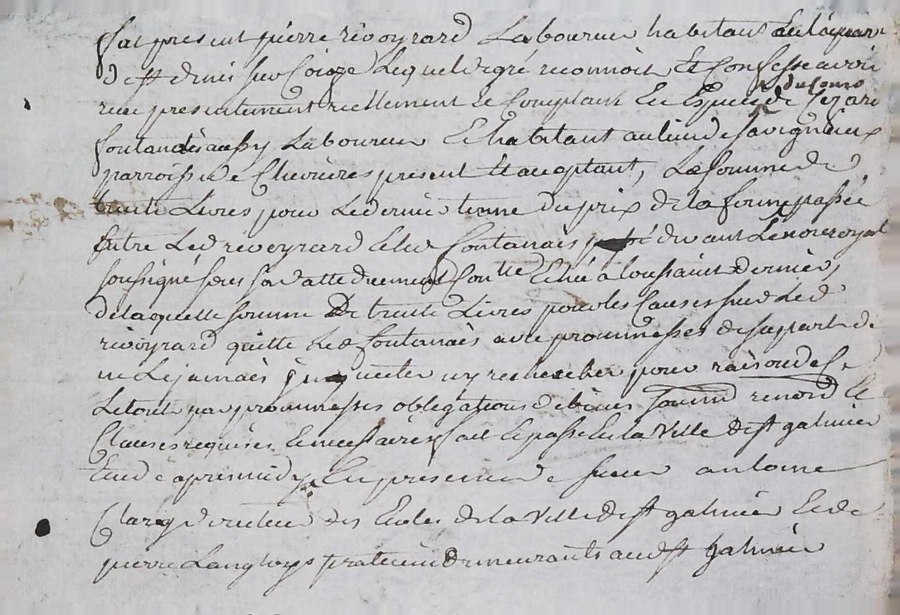 fut present pierre revoyrard Laboureur habitant de la parr
de st denis sur Coize Lequel de gré reconnoit Et Confesse avoir
du cons
receu presentement reellement Et Comptant En Espèces de
fontanès aussy Laboureur Et habitant au lieu de savignieux
parroisse de Chevrieres present Et acceptant, La somme de
trente Livres pour Le dernier terme du prix de la ferme passée
Entre Led revoyrard Et led fontanais devant Le nore royal
soussigné sous sa datte deuement Con lle Echû a toussaint dernier,
de laquelle somme De trente Livres pour les Causes sus d Led
revoyrard quitte Led fontanais avec prommesses de sa part de
ne Le jamais inquietter ny rechercher pour raison de ce
Le tout par prommesses obligations de biens soumd renond Et
Clauses requises Et necessaires fait Et passé En la Ville de st galmier
Etude apres midy En presence de sieur antoine
Clerc Docteur des Ecoles de la Ville de st galmier Et de
pierre Langloys praticien demeurants aud st galmier